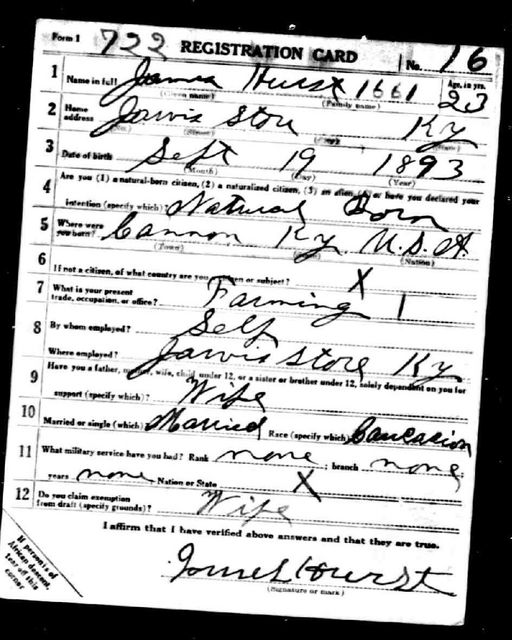 Form 1 722 REGISTRATION CARD No. 16
1 Name in full James Hurst 1661 Age, in yrs. 23
(Given name) (Family name)
2 Home address Jarvis Store Ky
(No.) (Street) (City) (State)
3 Date of birth Sept 19 1893
(Month) (Day) (Year)
4 Are you (1) a natural-born citizen, (2) a naturalized citizen, (3) an alien, (4) or have you declared your
intention (specify which)? Natural Born
5 Where were you born? Cannon Ky. U.S.A.
(Town) (State) (Nation)
6 If not a citizen, of what country are you a citizen or subject? X
7 What is your present trade, occupation, or office? Farming 1
8 By whom employed? Self
Where employed? Jarvis Store Ky
9 Have you a father, mother, wife, child under 12, or a sister or brother under 12, solely dependent on you for
support (specify which)? Wife
10 Married or single (which) Married Race (specify which) Caucasion
11 What military service have you had? Rank none ; branch none ;
years none Nation or State X
12 Do you claim exemption from draft (specify grounds)? Wife
I affirm that I have verified above answers and that they are true.
James Hurst
(Signature or mark)
If person is of
African descent,
tear off this
corner